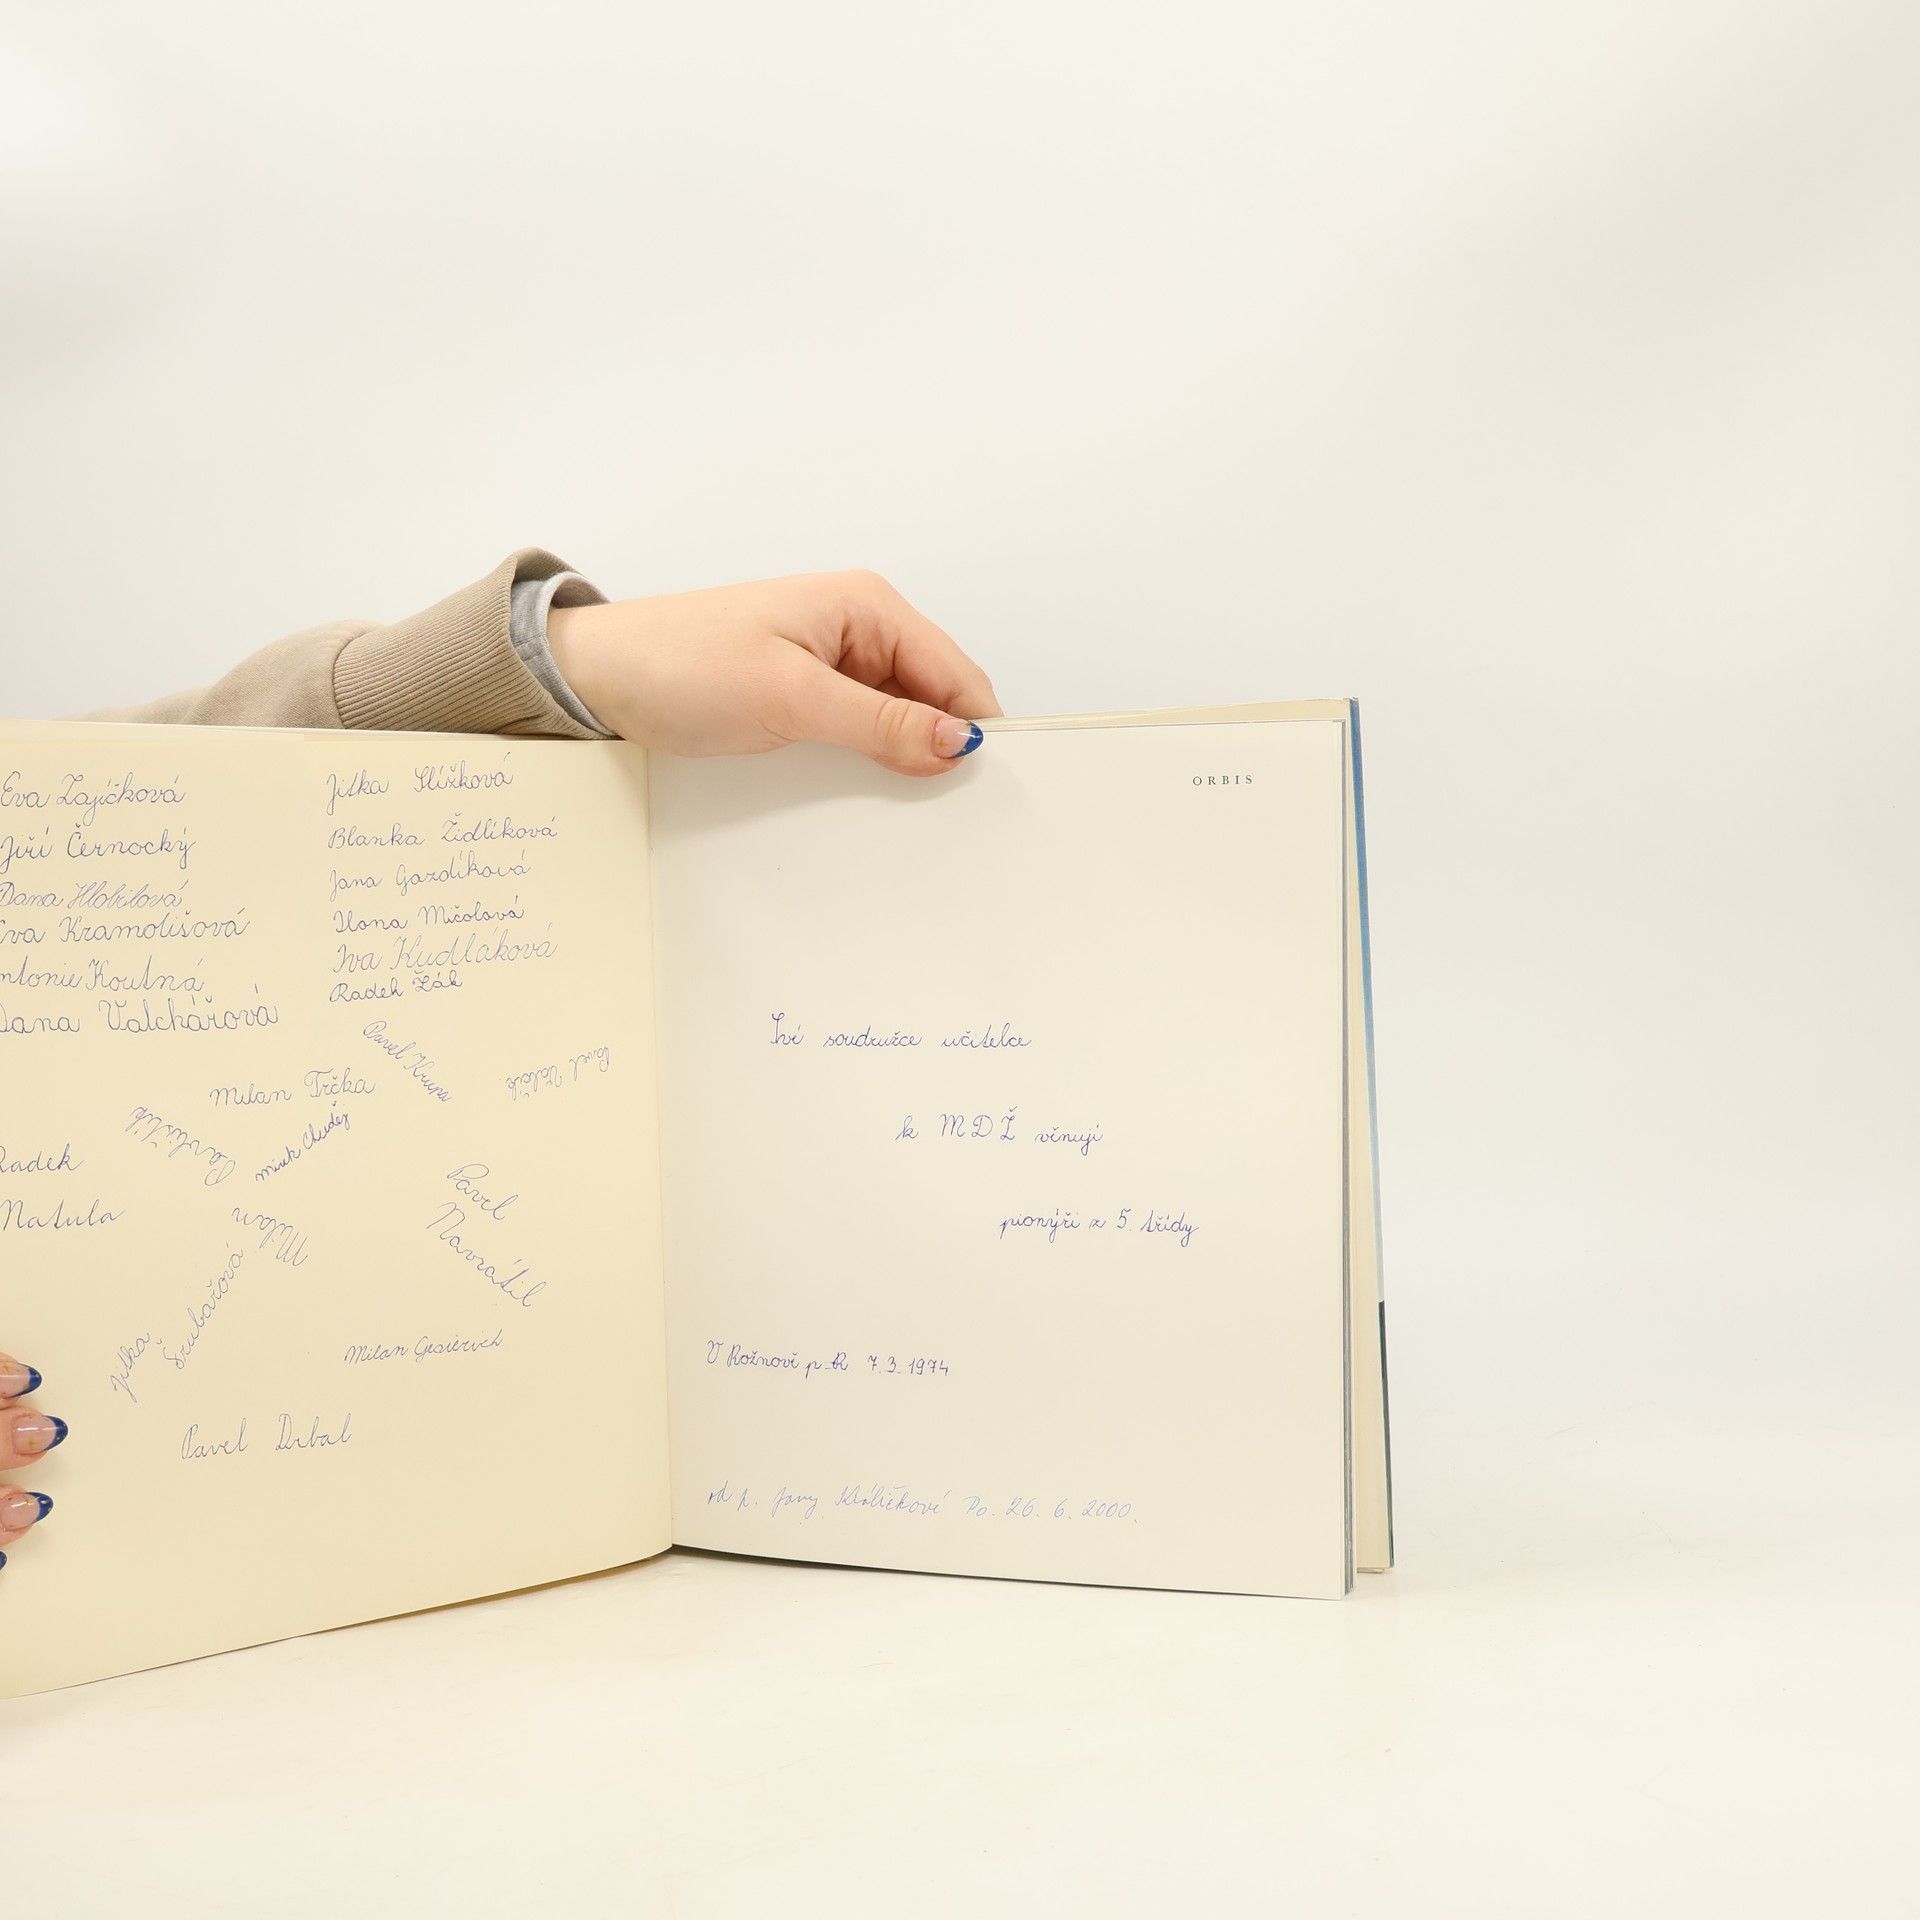 Eva Zajíčková
Jiří Černocký
Dana Hlobilová
Eva Kramolišová
ntonie Koutná
Dana Valchářová
Jitka Slížková
Blanka Židlíková
Jana Gazdíková
Ilona Mičolová
Iva Kudláková
Radek Žák
Pavel Krupa
Pavel Valčík
Milan Trčka
Mirek Chuděj
Pavlištík
Milan
Radek
Natula
Pavel
Navrátil
Jitka
Šrubařová
Milan
Pavel Drbal
ORBIS
Své soudružce učitelce
k MDŽ věnují
pionýři z 5. třídy
V Rožnově p. R 7.3.1974
od p. Jany Králíčkové Po. 26. 6. 2000.